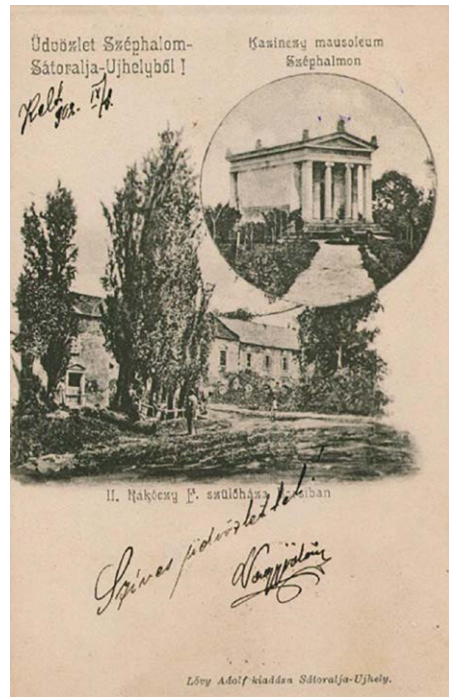 Üdvözlet Széphalom-
Sátoralja-Ujhelyből !
Kazinczy mausoleum
Széphalmon
Kelt
902. IV/8.
II. Rákóczy F. szülőháza Borsiban
Szíves üdvözlettel!
Lővy Adolf kiadása Sátoralja-Ujhely.